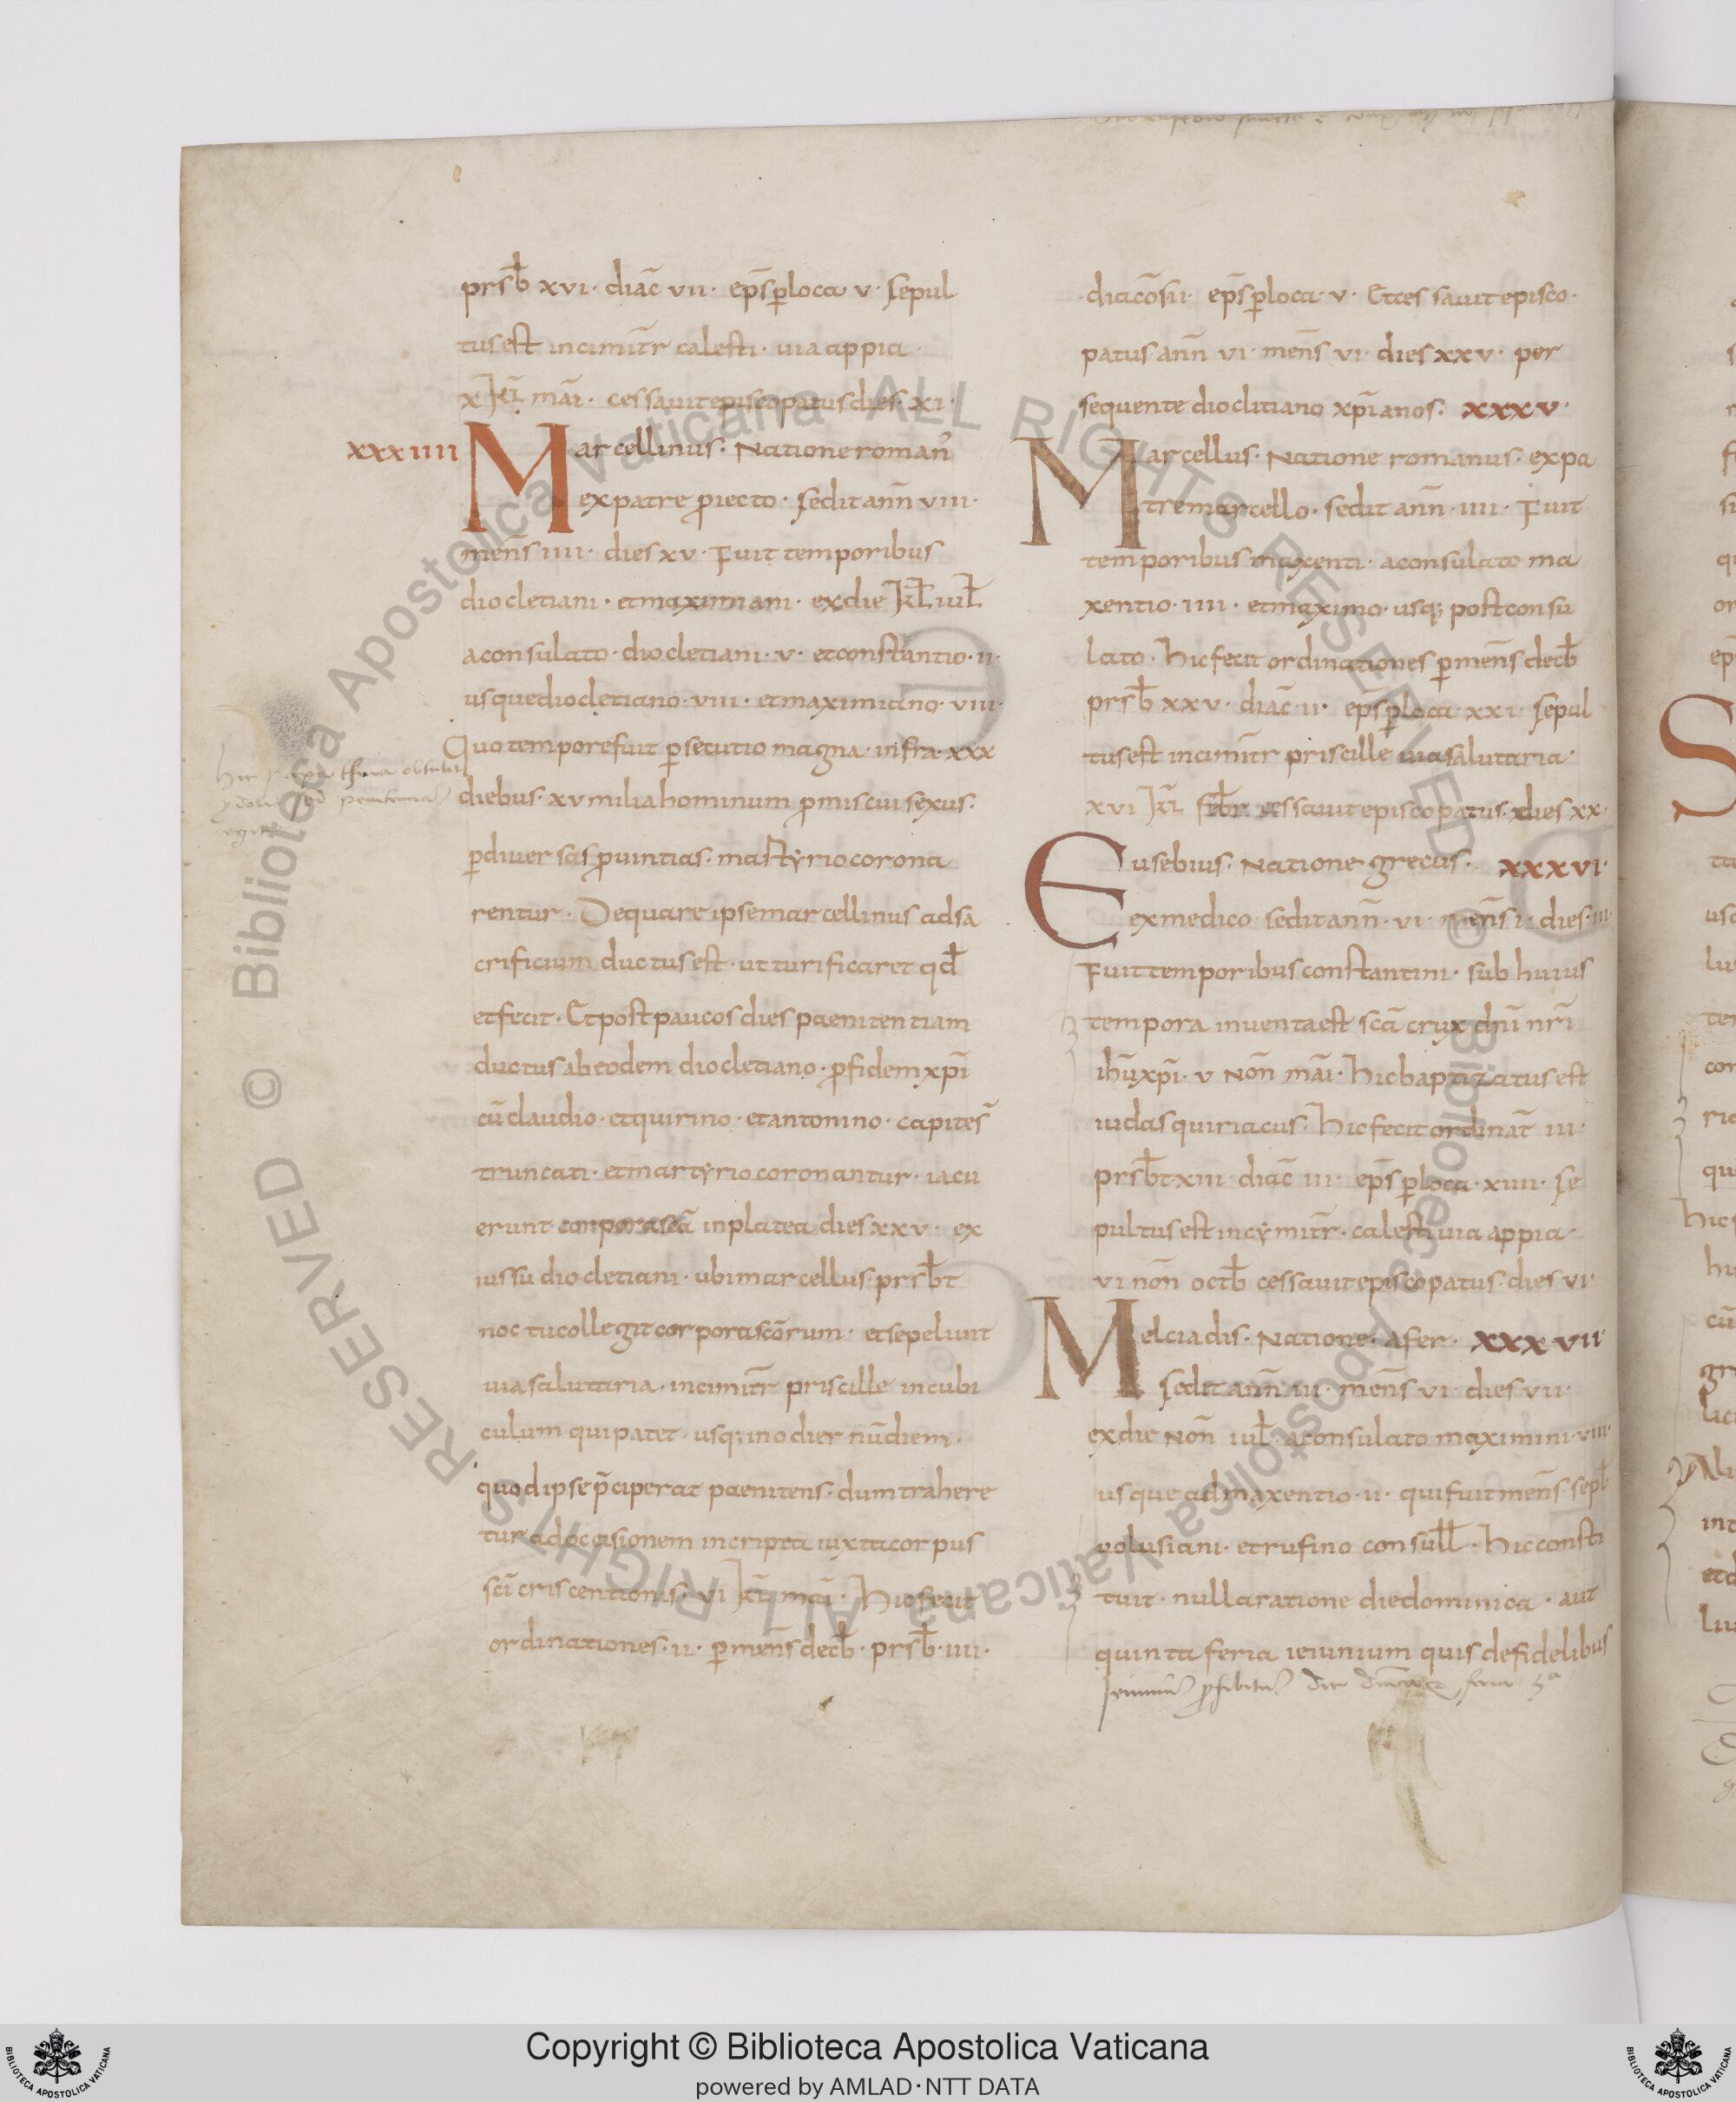 prsb̄ xvi · diac̄ vii · ep̄s p̲loca v · sepul
tus est in cimit̄r calesti · uia appia ·
x kl̄ mai · cessauit episcopatus dies · xi ·
xxxiiii Marcellinus · Natione roman̄
ex patre p̲iecto · sedit ann̄ viii ·
mens̄ iiii · dies xv · Fuit temporibus
diocletiani · et maximiani · ex die kl̄ iul̄
a consulato · diocletiani · v · et constantio · ii ·
usque diocletiano · viii · et maximiano · viii ·
Quo tempore fuit p̲secutio magna · infra · xxx
diebus · xv milia hominum p̲miscui sexus ·
p̲ diuersas p̲uintias · martyrio corona
rentur · De qua re ipse marcellinus ad sa
crificium ductus est · ut turificaret qd̄
et fecit · Et post paucos dies paenitentiam
ductus ab eodem diocletiano · p̲ fidem xp̄i
cū claudio · et quirino · et antonino · capite s̄
truncati · et martyrio coronantur · iacu
erunt corpora scā in platea dies xxv · ex
iussu diocletiani · ubi marcellus prsb̄t
noctu collegit corpora scōrum · et sepeliuit
uia salutaria · in cimit̄r priscille in cubi
culum qui patet · usq; in odiernū diem ·
quod ipse p̄ciperat paenitens · dum trahere
tur ad occisionem in cripta iuxta corpus
scī criscentionis · vi kl̄ mai · Hic fecit
ordinationes · ii · p̲ mens̄ decb̄ · prsb̄ · iiii ·
ydola penitentia
diacōs ii · ep̄s p̲loca · v · Et cessauit episco ·
patus ann̄ vi · mens̄ vi · dies xxv · per
sequente dioclitiano xp̄ianos · xxxv ·
Marcellus · Natione romanus · ex pa
tre marcello · sedit ann̄ · iiii · Fuit
temporibus maxenti · a consulato ma
xentio · iiii · et maximo · usq; post consu
lato · Hic fecit ordinationes p̲ mens̄ decb̄
prsb̄ xxv · diac̄ · ii · ep̄s p̲loca · xxi · sepul
tus est in cimit̄r priscille uia salutaria ·
xvi kl̄ feb̄r cessauit episcopatus · dies xx ·
Eusebius · Natione grecus · xxxvi ·
ex medico sedit ann̄ · vi · mens̄ i · dies · iii ·
Fuit temporibus constantini · sub huius
tempora inuenta est scā crux dn̄i nr̄i
ihū xp̄i · v non̄ mai · Hic baptizatus est
iudas quiriacus · Hic fecit ordinat̄ iii ·
prsb̄t xiii diac̄ iii · ep̄s p̲loca · xiiii · se
pultus est in cymit̄r · calesti uia appia ·
vi non̄ octb̄ cessauit episcopatus · dies vi ·
Melciadis · Natione · afer · xxxvii ·
sedit ann̄ iii · mens̄ vi · dies vii ·
ex die non̄ iul̄ · a consulato maximini · viiii ·
usque ad maxentio · ii · qui fuit mens̄ · sepb̄
uolusiani · et rufino consull̄ · Hic consti
tuit · nulla ratione die dominica · aut
quinta feria ieiunium quis de fidelibus
Copyright © Biblioteca Apostolica Vaticana
powered by AMLAD·NTT DATA
© Biblioteca Apostolica Vaticana ALL RIGHTS RESERVED © Biblioteca Apostolica Vaticana ALL RIGHTS RESERVED
BIBLIOTECA APOSTOLICA VATICANA
BIBLIOTECA APOSTOLICA VATICANA